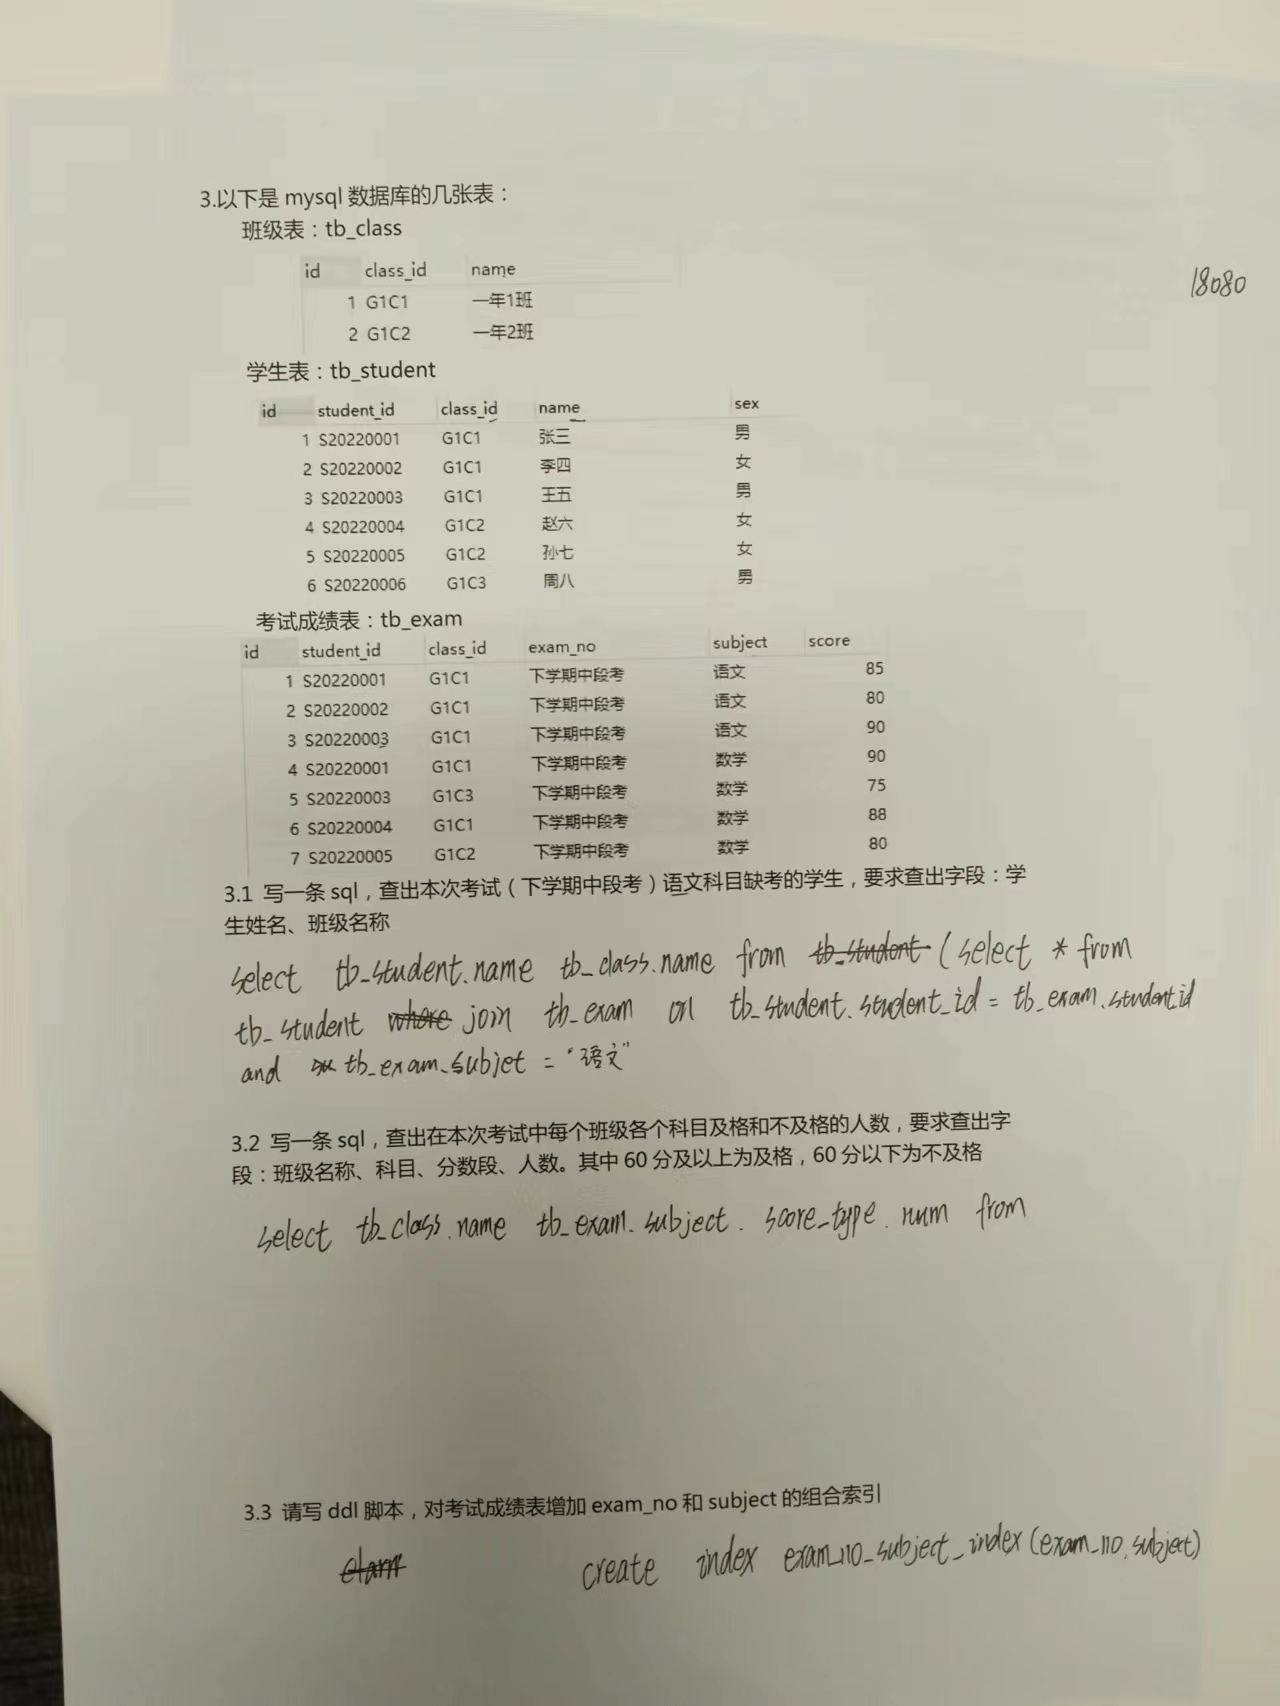 3.以下是 mysql 数据库的几张表：
班级表：tb_class
id class_id name
1 G1C1 一年1班
2 G1C2 一年2班
18080
学生表：tb_student
id student_id class_id name sex
1 S20220001 G1C1 张三 男
2 S20220002 G1C1 李四 女
3 S20220003 G1C1 王五 男
4 S20220004 G1C2 赵六 女
5 S20220005 G1C2 孙七 女
6 S20220006 G1C3 周八 男
考试成绩表：tb_exam
id student_id class_id exam_no subject score
1 S20220001 G1C1 下学期中段考 语文 85
2 S20220002 G1C1 下学期中段考 语文 80
3 S20220003 G1C1 下学期中段考 语文 90
4 S20220001 G1C1 下学期中段考 数学 90
5 S20220003 G1C3 下学期中段考 数学 75
6 S20220004 G1C1 下学期中段考 数学 88
7 S20220005 G1C2 下学期中段考 数学 80
3.1 写一条 sql，查出本次考试（下学期中段考）语文科目缺考的学生，要求查出字段：学
生姓名、班级名称
select tb_student.name tb_class.name from tb_student (select * from
tb_student where join tb_exam on tb_student.student_id = tb_exam.student_id
and tb_exam.subjet = "语文"
3.2 写一条 sql，查出在本次考试中每个班级各个科目及格和不及格的人数，要求查出字
段：班级名称、科目、分数段、人数。其中 60 分及以上为及格，60 分以下为不及格
select tb_class.name tb_exam.subject. score_type.num from
3.3 请写 ddl 脚本，对考试成绩表增加 exam_no 和 subject 的组合索引
create index exam_no_subject_index(exam_no,subject)